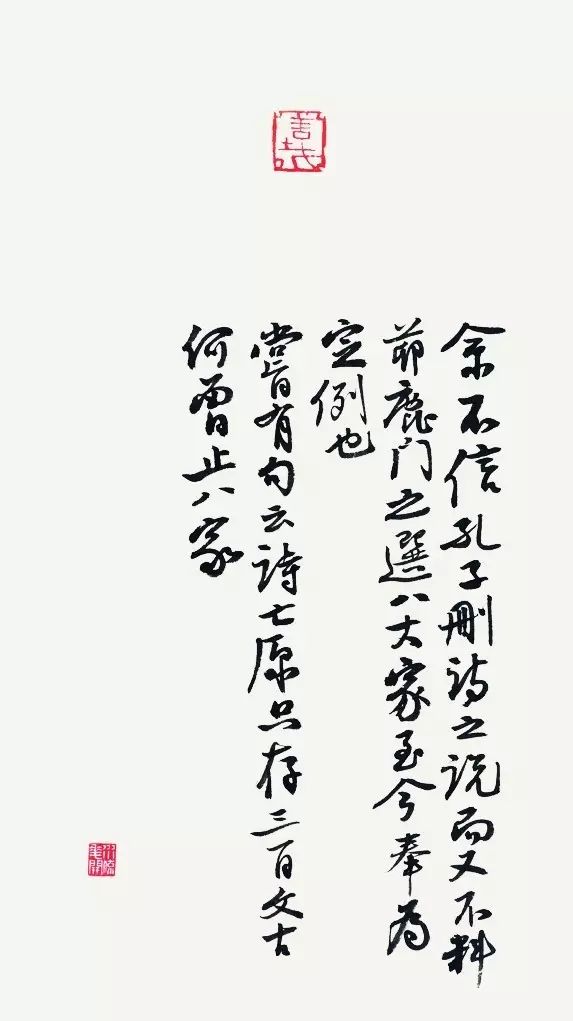 善哉
余不信孔子刪詩之说而又不料
茆鹿門之選八大家至今奉為
定例也
嘗有句云詩亡原只存三百文古
何曾止八家
水流花開